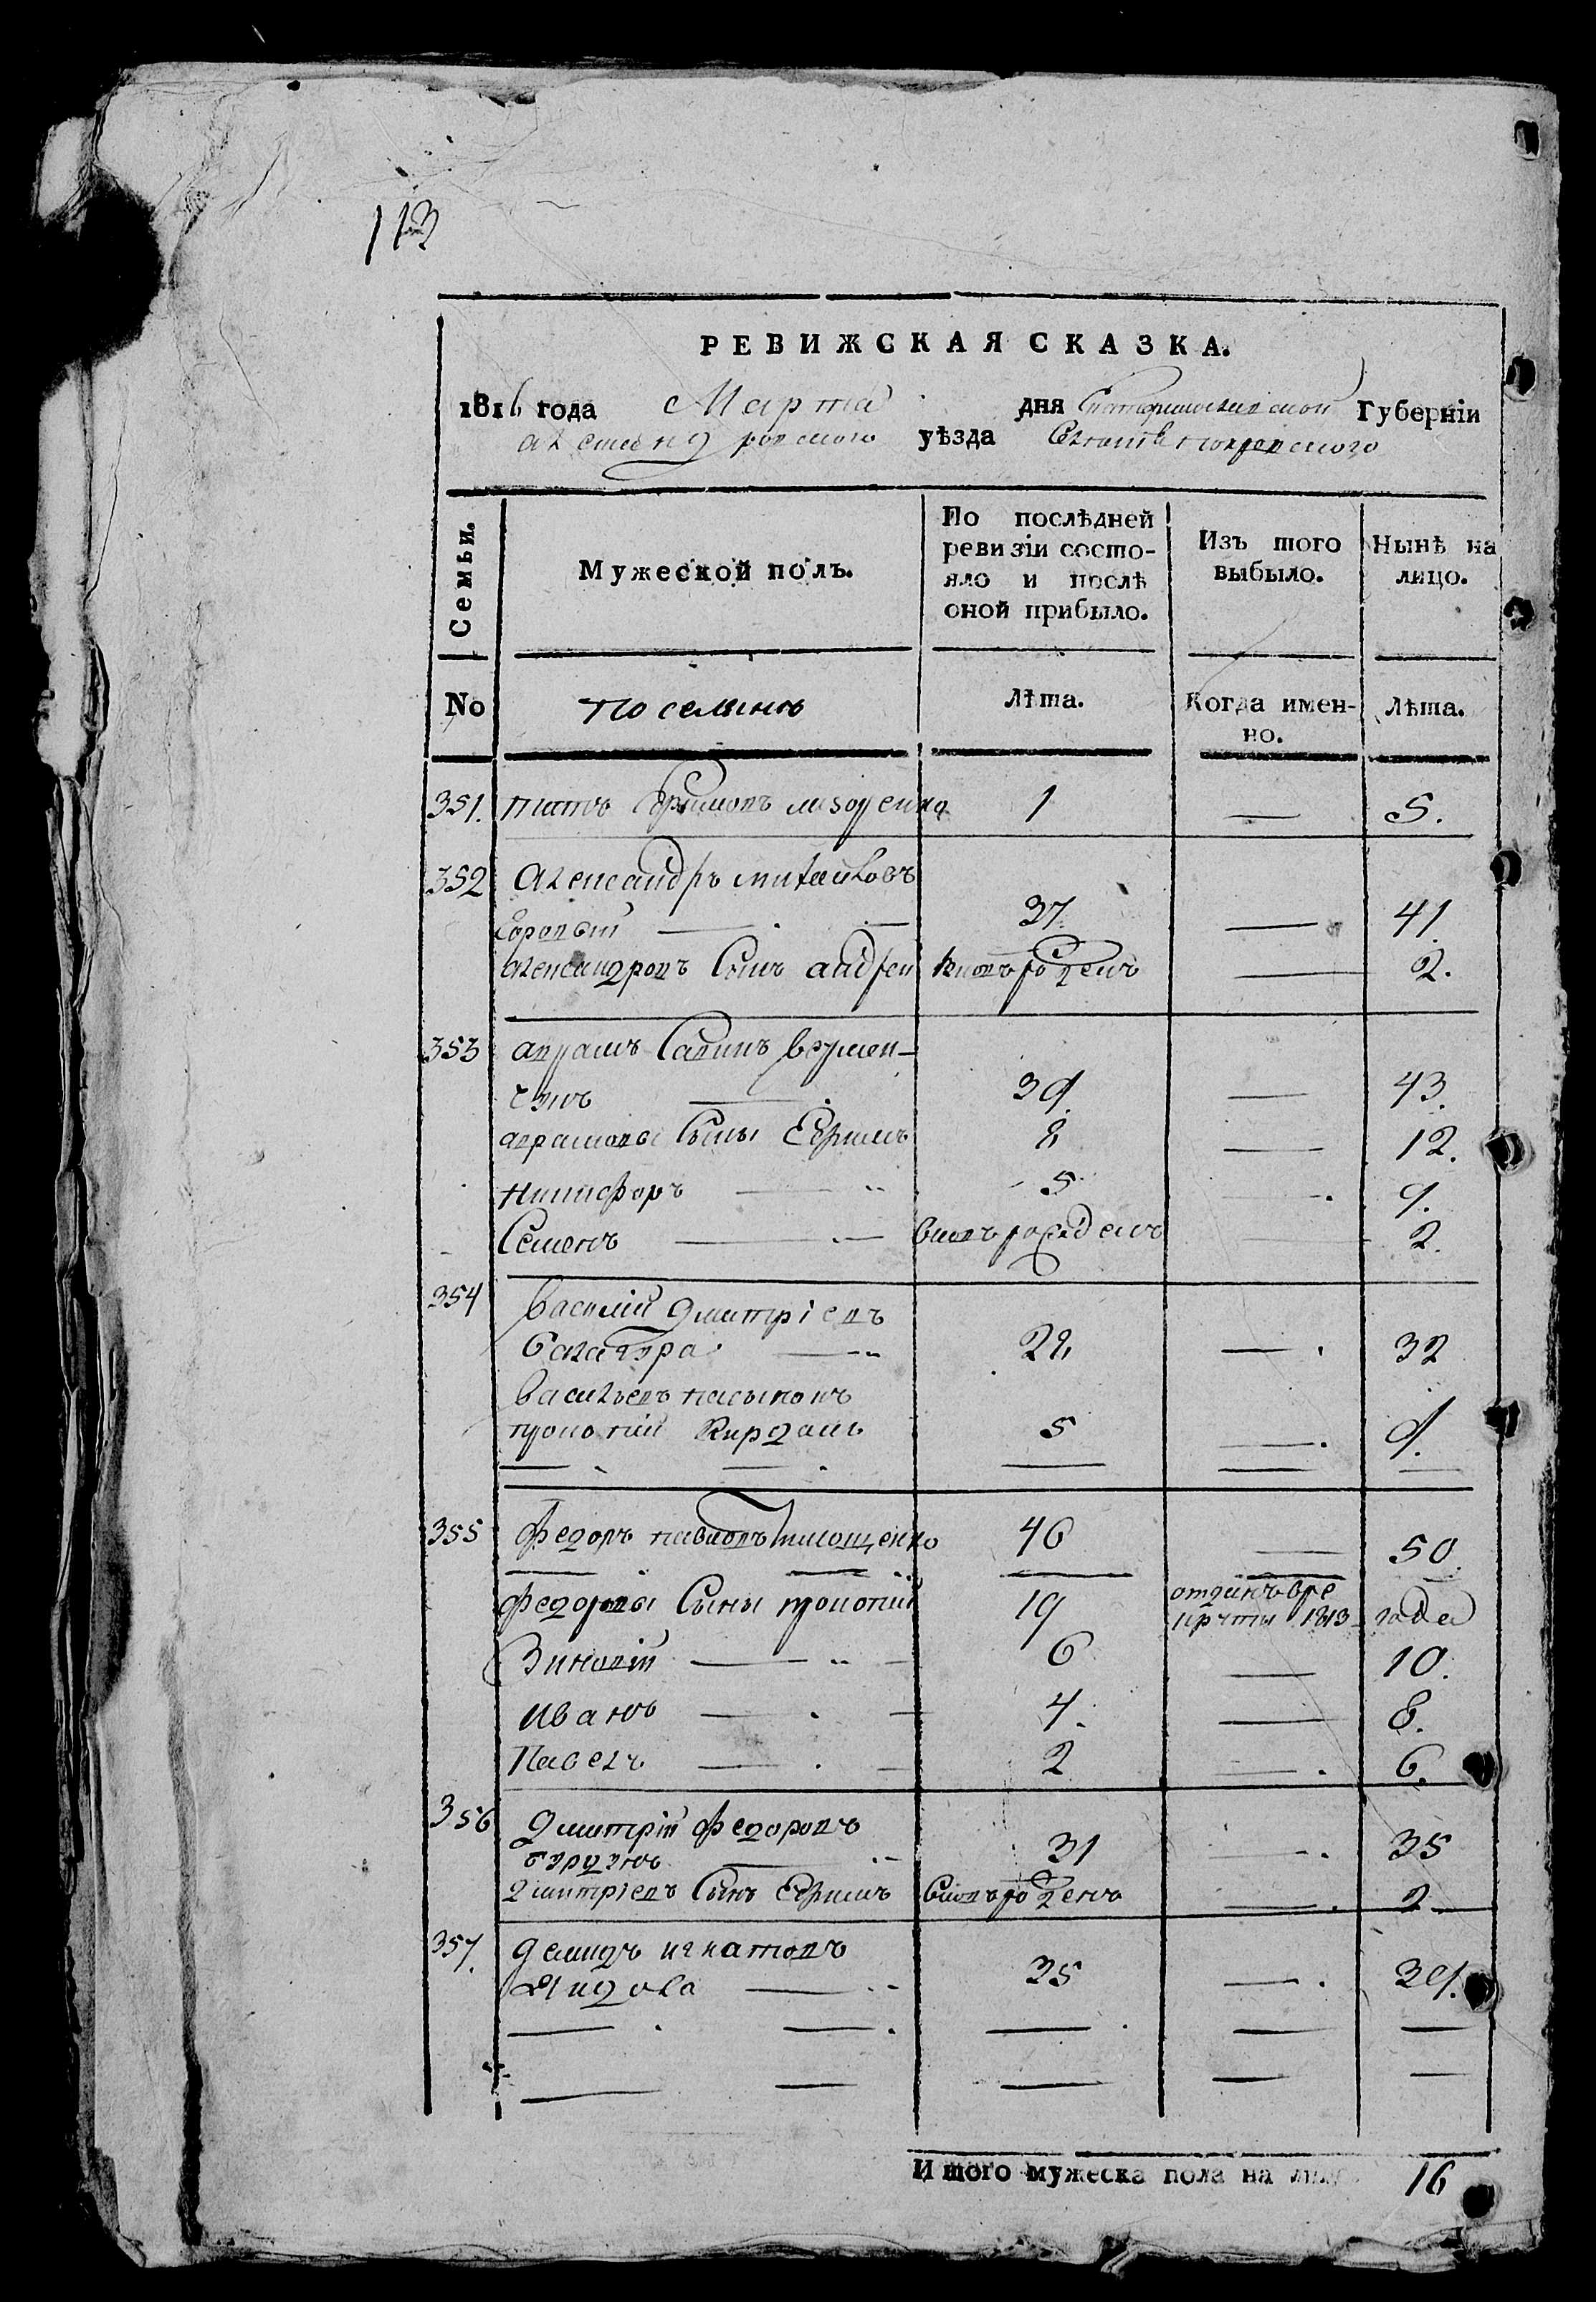 113
РЕВИЖСКАЯ СКАЗКА.
1816 года Марта дня Екатеринославской Губерніи
Александровского уѣзда
Семьи. Мужеской полъ. По послѣдней ревизіи состояло и послѣ оной прибыло. Изъ того выбыло. Нынѣ на лицо.
No Лѣта. Когда именно. Лѣта.
351. титъ Ефимовъ 1 — 5.
352 Александръ михайловъ
37. — 41.
александровъ Сынъ андрей вновърожденъ — 2.
353 аврамъ Савинъ
39. — 43.
аврамовы Сыны Ефимъ 8 — 12.
никифоръ — 5 — 9.
Семенъ — вновърожденъ 2.
354 василій дмитріевъ
28 — 32
васильевъ пасынокъ
прокопій 5 — 9.
355 федоръ павловъ тимощенко 46 — 50.
федоровы Сыны прокопій 19 отданъ вре
круты 1813 года
Зиновій — 6 — 10.
иванъ — 4. — 8.
Павелъ — 2 — 6.
356 дмитрій федоровъ
31 — 35
дмитріевъ Сынъ Ефимъ вновърожденъ — 2
357. демидъ игнатовъ
35 — 39.
Итого мужеска пола на 16